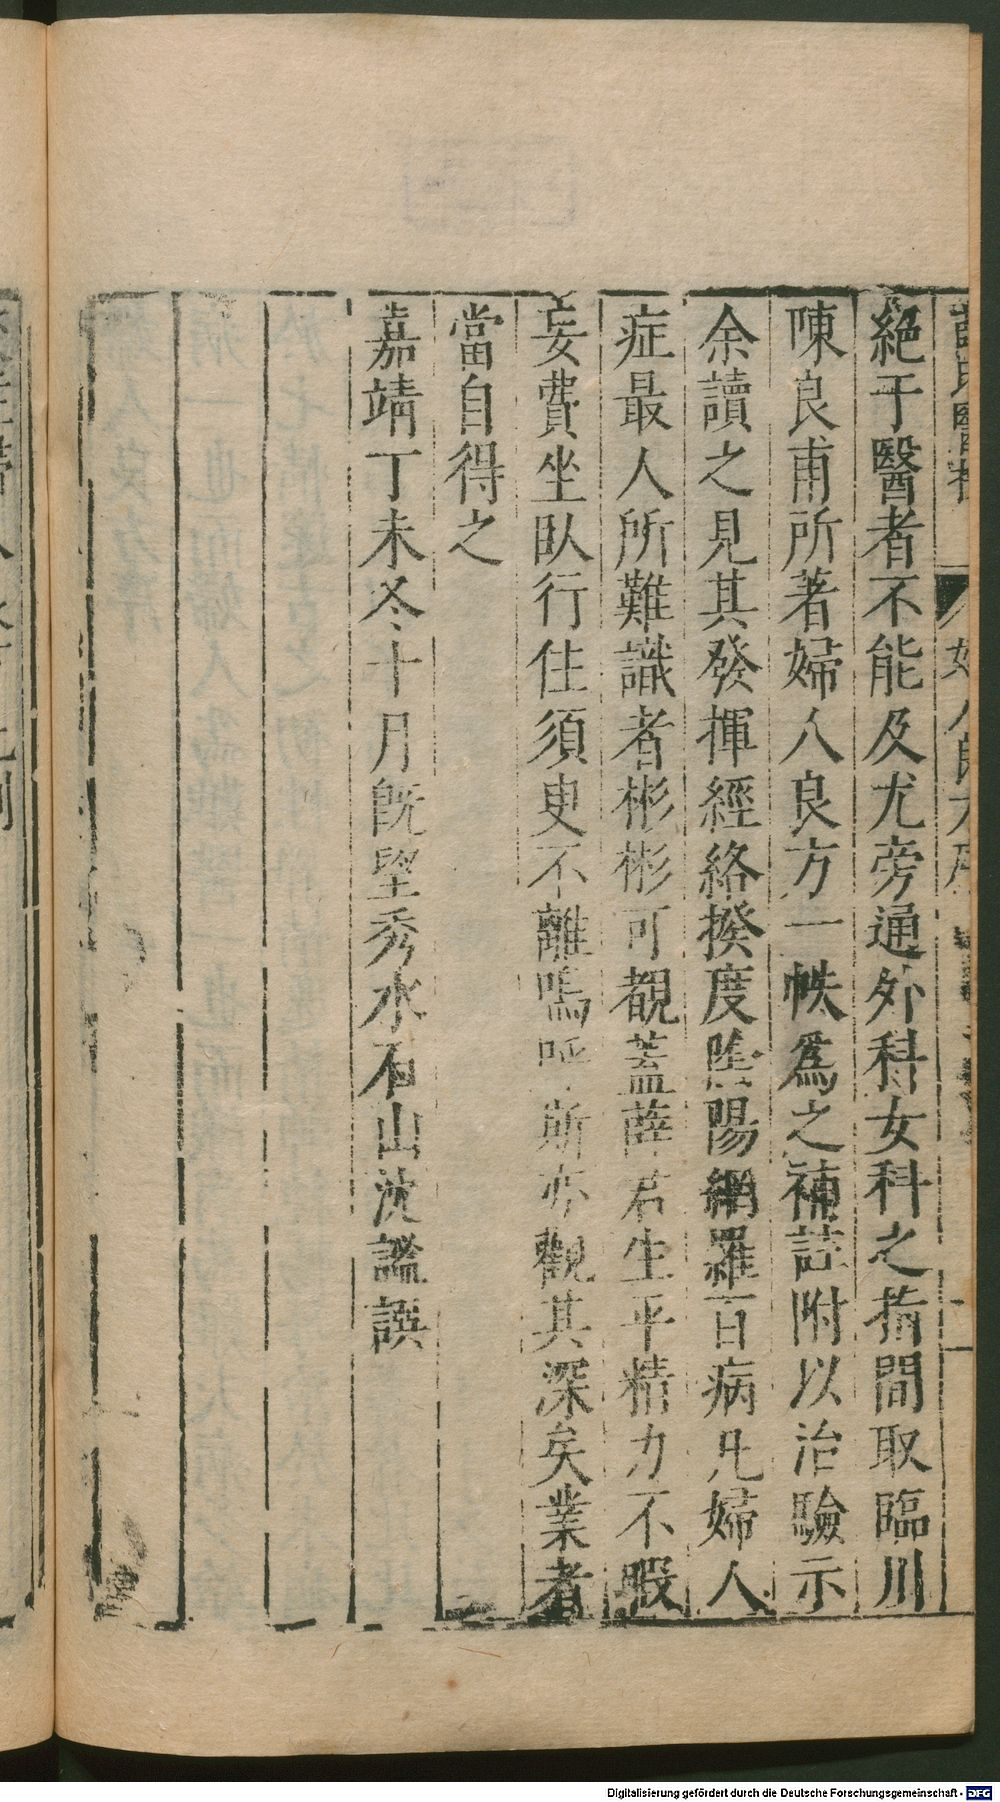 薛氏醫按 婦人良方序 二
絕于醫者不能及尤旁通外科女科之指間取臨川
陳良甫所著婦人良方一帙爲之補註附以治驗示
余讀之見其發揮經絡揆度陰陽網羅百病凡婦人
症最人所難識者彬彬可覩蓋薛君生平精力不暇
妄費坐臥行住須臾不離嗚呼斯亦觀其深矣業者
當自得之
嘉靖丁未冬十月旣望秀水石山沈謐譔
Digitalisierung gefördert durch die Deutsche Forschungsgemeinschaft - DFG